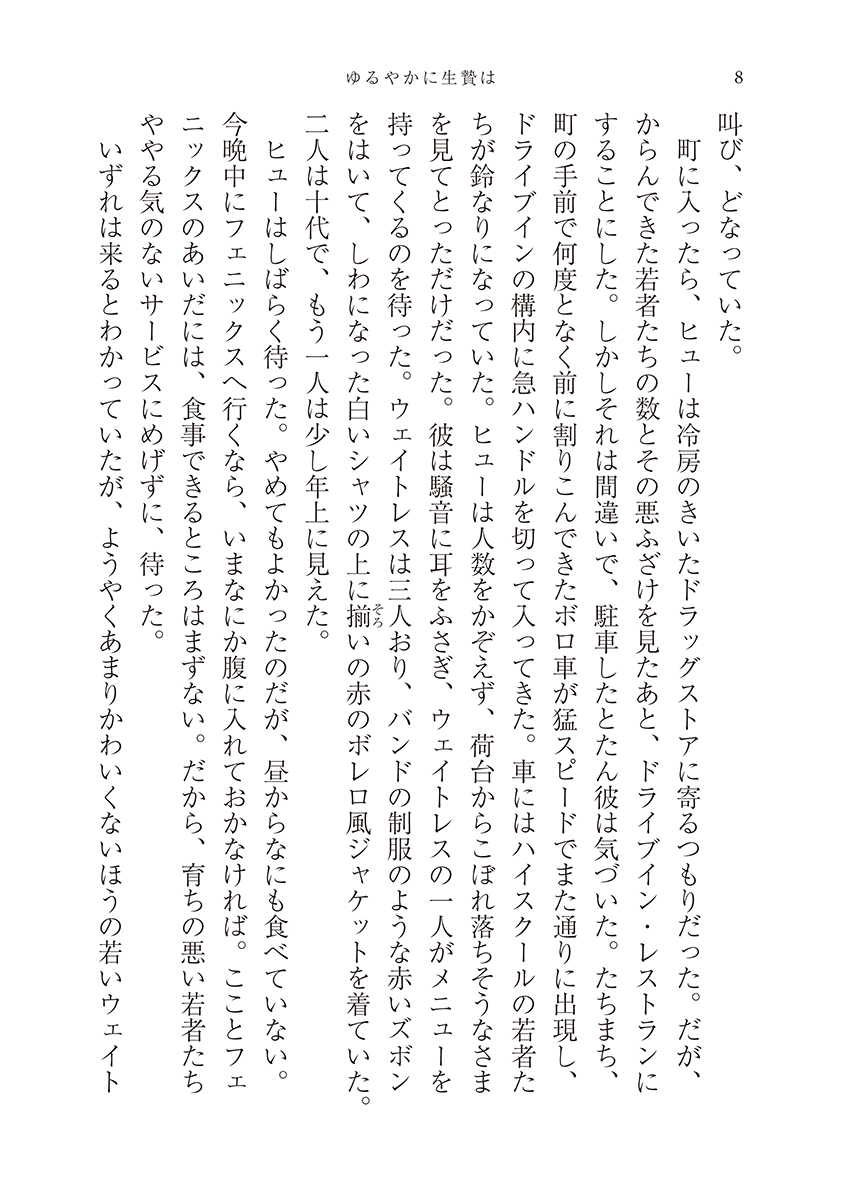 ゆるやかに生贄は
8
叫び、どなっていた。
町に入ったら、ヒューは冷房のきいたドラッグストアに寄るつもりだった。だが、
からんできた若者たちの数とその悪ふざけを見たあと、ドライブイン・レストランに
することにした。しかしそれは間違いで、駐車したとたん彼は気づいた。たちまち、
町の手前で何度となく前に割りこんできたボロ車が猛スピードでまた通りに出現し、
ドライブインの構内に急ハンドルを切って入ってきた。車にはハイスクールの若者た
ちが鈴なりになっていた。ヒューは人数をかぞえず、荷台からこぼれ落ちそうなさま
を見てとっただけだった。彼は騒音に耳をふさぎ、ウェイトレスの一人がメニューを
持ってくるのを待った。ウェイトレスは三人おり、バンドの制服のような赤いズボン
をはいて、しわになった白いシャツの上に揃そろいの赤のボレロ風ジャケットを着ていた。
二人は十代で、もう一人は少し年上に見えた。
ヒューはしばらく待った。やめてもよかったのだが、昼からなにも食べていない。
今晩中にフェニックスへ行くなら、いまなにか腹に入れておかなければ。こことフェ
ニックスのあいだには、食事できるところはまずない。だから、育ちの悪い若者たち
ややる気のないサービスにめげずに、待った。
いずれは来るとわかっていたが、ようやくあまりかわいくないほうの若いウェイト